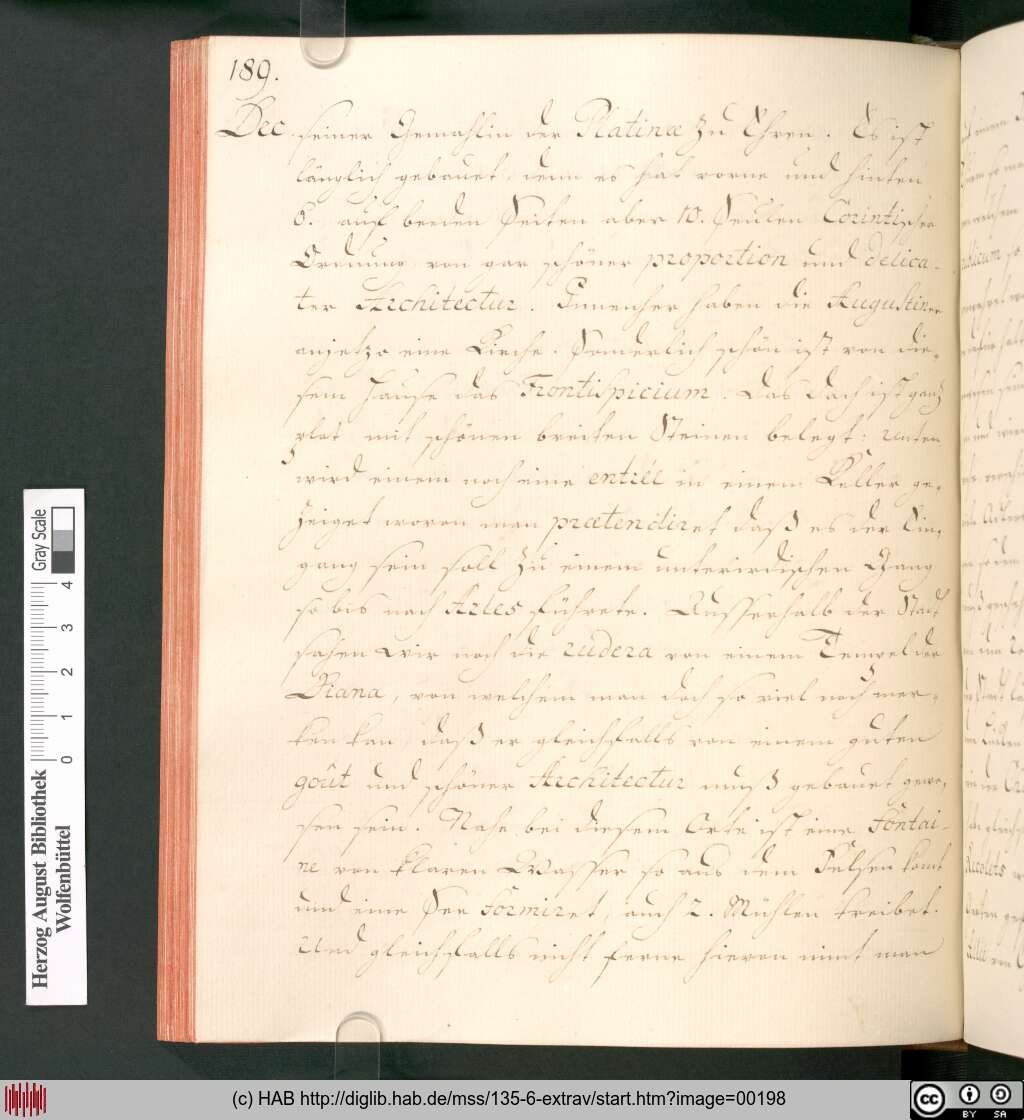 189.
Dec. seiner Gemahlin der Platinæ zu Ehren. Es ist
länglich gebauet, denn es hat vorne und hinten
6. auf beeden Seiten aber 10. Seulen Corintischer
Ordnung von gar schöner proportion und delica-
ter Architectur. Innenher haben die Augustiner
anjetzo eine Kirche. Sonderlich schön ist von die-
sem Hause das Frontispicium. Das Dach ist ganz
plat mit schönen breiten Steinen belegt: unten
wird einem noch eine entrée in einem Keller ge-
zeiget wovon man prætendiret daß es der Ein-
gang sein soll zu einem unterirdischen Gang
so bis nach Arles führete. Ausserhalb der Stadt
sahen wir noch die rudera von einem Tempel der
Diana, von welchem man doch so viel noch mer-
ken kan, daß er gleichfalls von einem guten
goût und schöner Architectur muß gebauet gewe-
sen sein. Nahe bei diesem Orte ist eine fontai-
ne von klaren Wasser so aus dem Felsen komt
und eine See formiret, auch 2. Mühlen treibet.
Und gleichfalls nicht ferne hievon nimt man
Herzog August Bibliothek
Wolfenbüttel
Gray Scale
0 1 2 3 4
(c) HAB http://diglib.hab.de/mss/135-6-extrav/start.htm?image=00198
cc BY SA